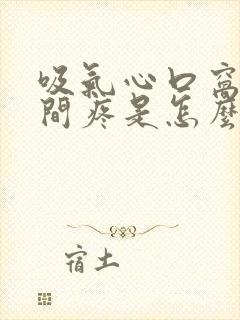 吸氣心口窩
間疼是怎麼
宿土